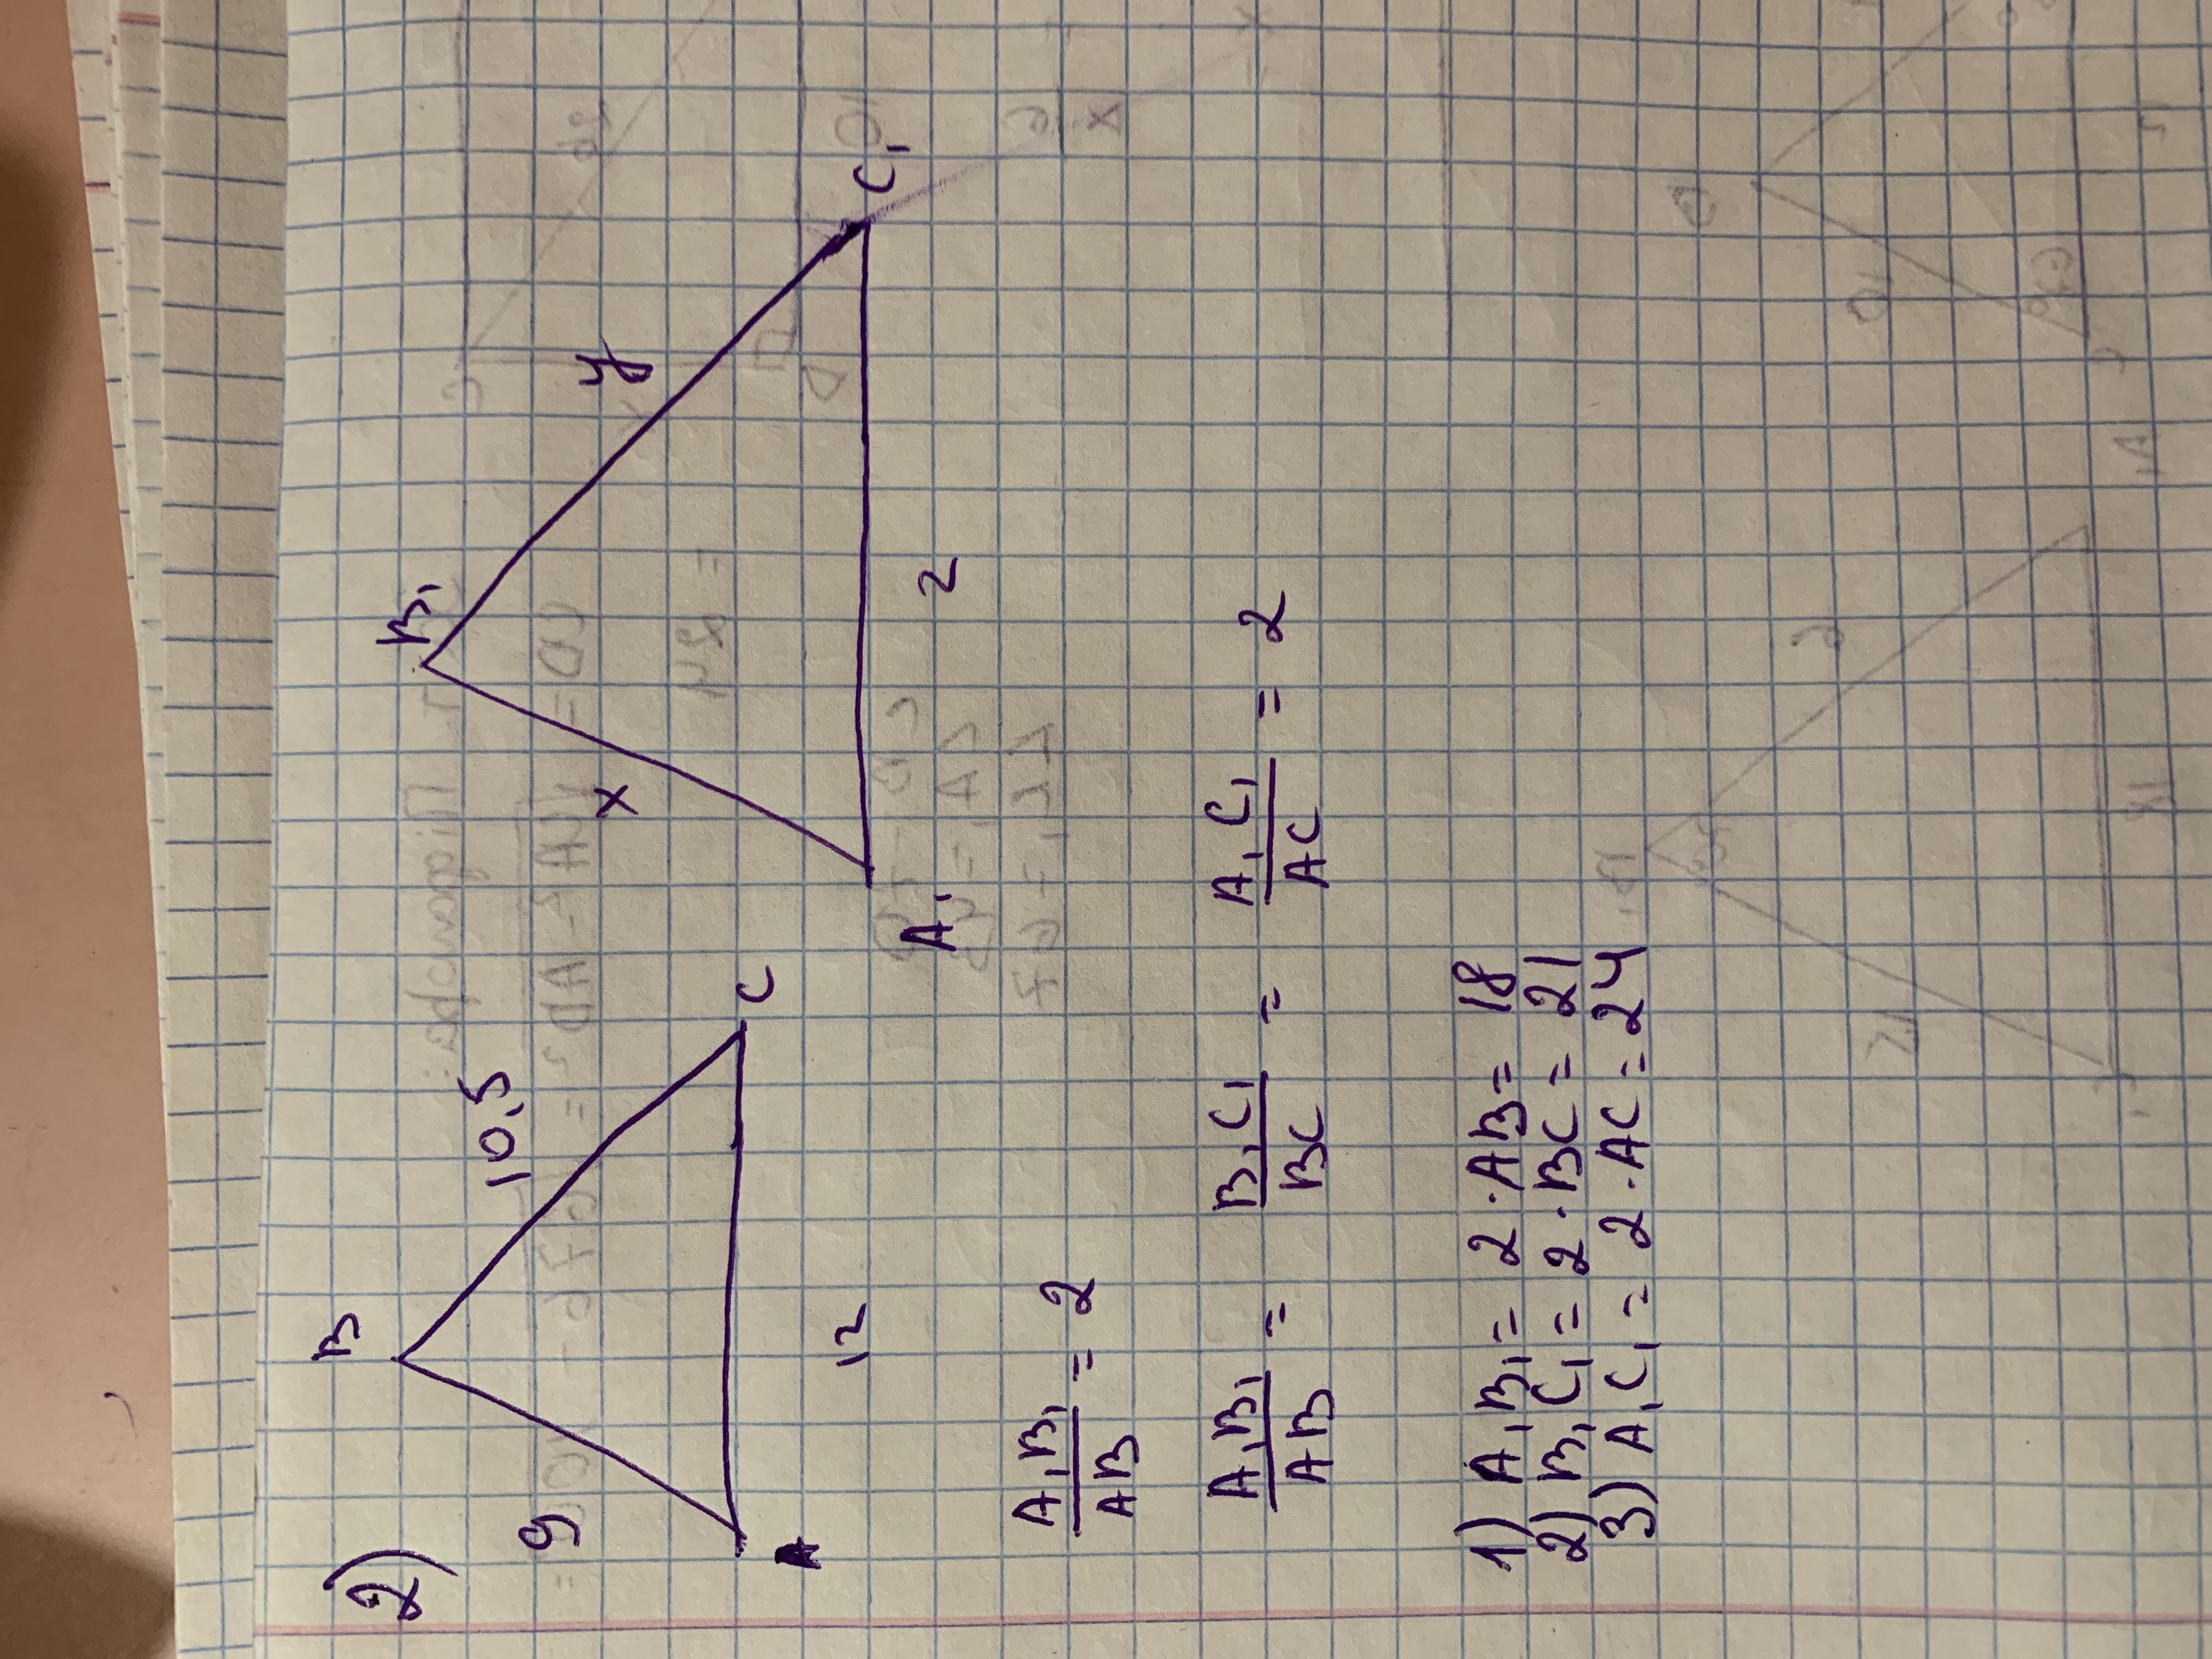 2)
B
B₁
9
10,5
x
y
A
C
A₁
C₁
12
z
A₁B₁/AB = 2
A₁B₁/AB = B₁C₁/BC = A₁C₁/AC = 2
1) A₁B₁ = 2 · AB = 18
2) B₁C₁ = 2 · BC = 21
3) A₁C₁ = 2 · AC = 24